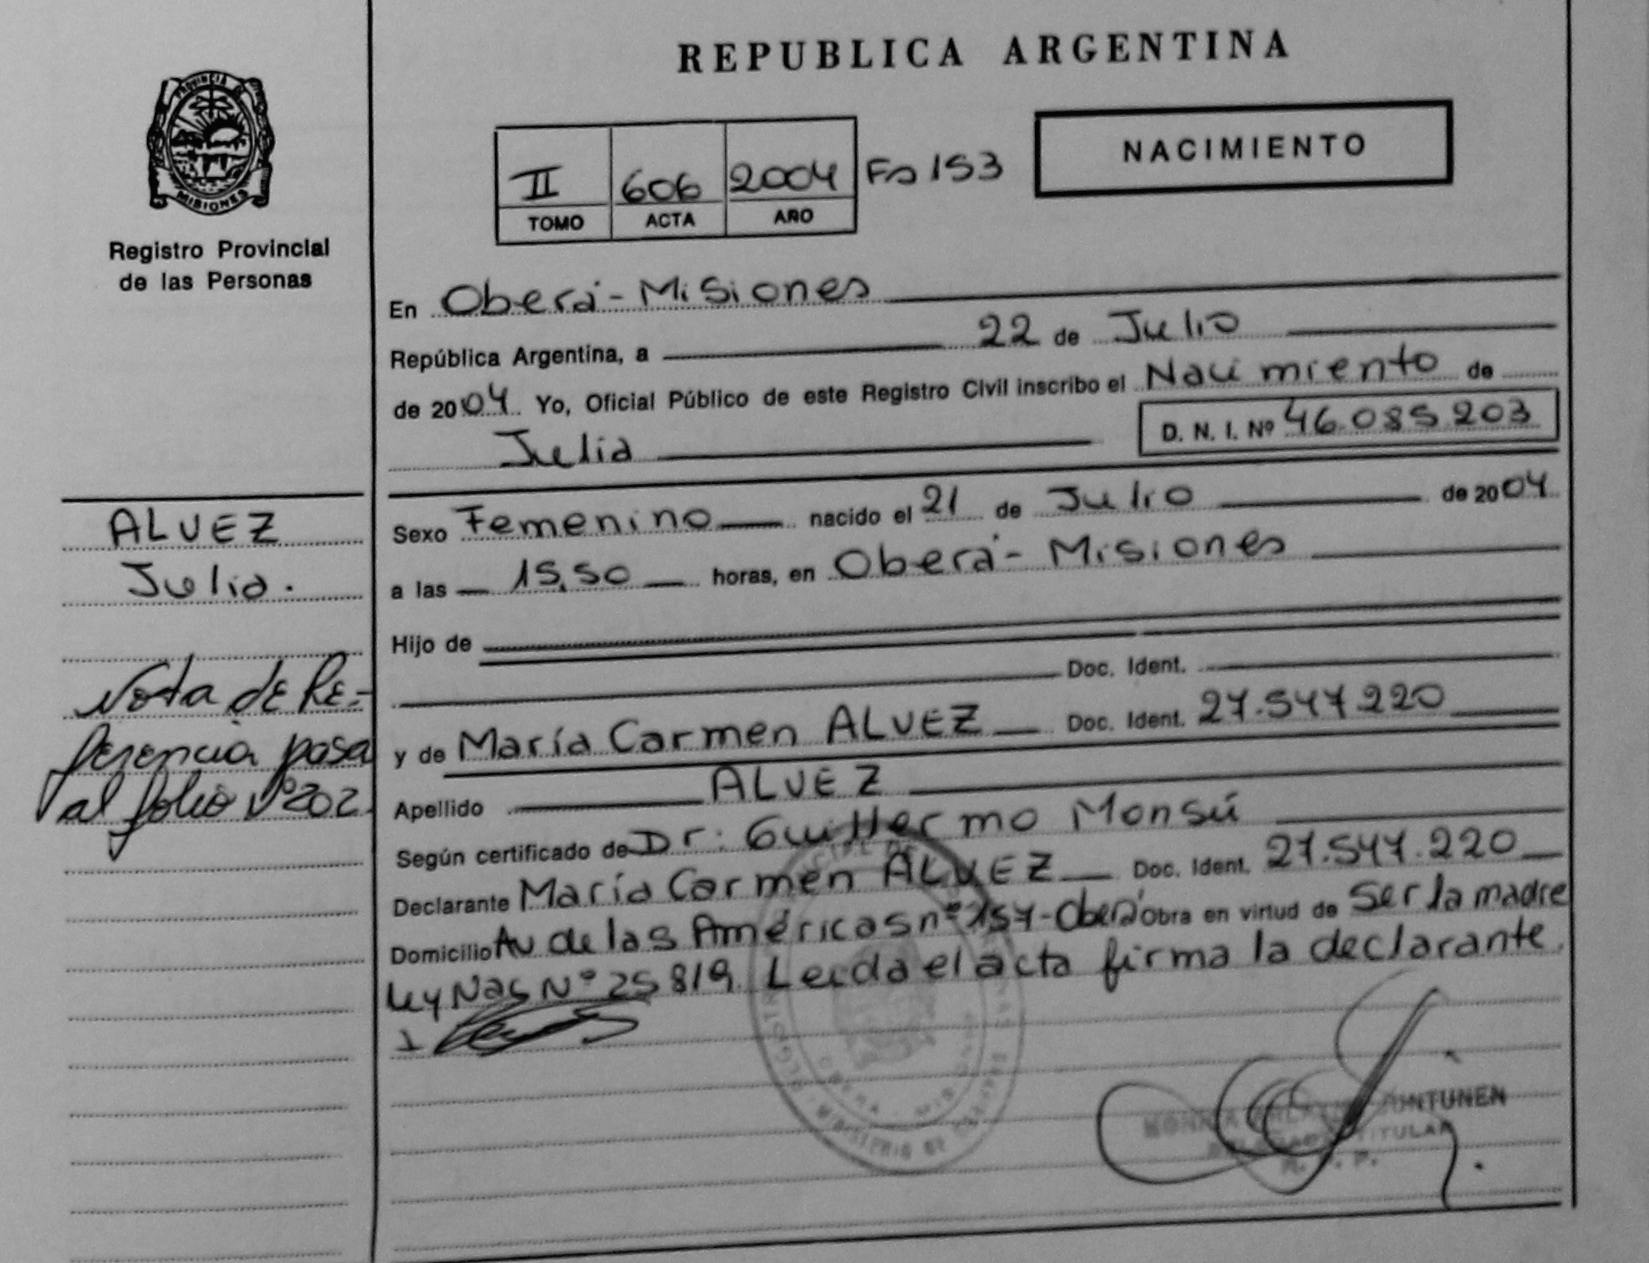 REPUBLICA ARGENTINA
PROVINCIA DE
MISIONES
Registro Provincial
de las Personas
II 606 2004 Fo 153
TOMO ACTA AÑO
NACIMIENTO
En Oberá - Misiones
República Argentina, a 22 de Julio
de 2004 Yo, Oficial Público de este Registro Civil inscribo el Nacimiento de
Julia D. N. I. Nº 46.085.203
ALVEZ
Julia.
Nota de Re-
ferencia pasa
al folio Nº 202
Sexo Femenino nacido el 21 de Julio de 2004
a las 15,50 horas, en Oberá - Misiones
Hijo de
Doc. Ident.
y de María Carmen ALVEZ Doc. Ident. 27.547.220
Apellido ALVEZ
Según certificado de Dr: Guillermo Monsú
Declarante María Carmen ALVEZ Doc. Ident. 27.547.220
Domicilio Av de las Américas nº 157 - Oberá Obra en virtud de Ser la madre
Ley Nac Nº 25819. Leida el acta firma la declarante.
JUNTUNEN
TITULAR